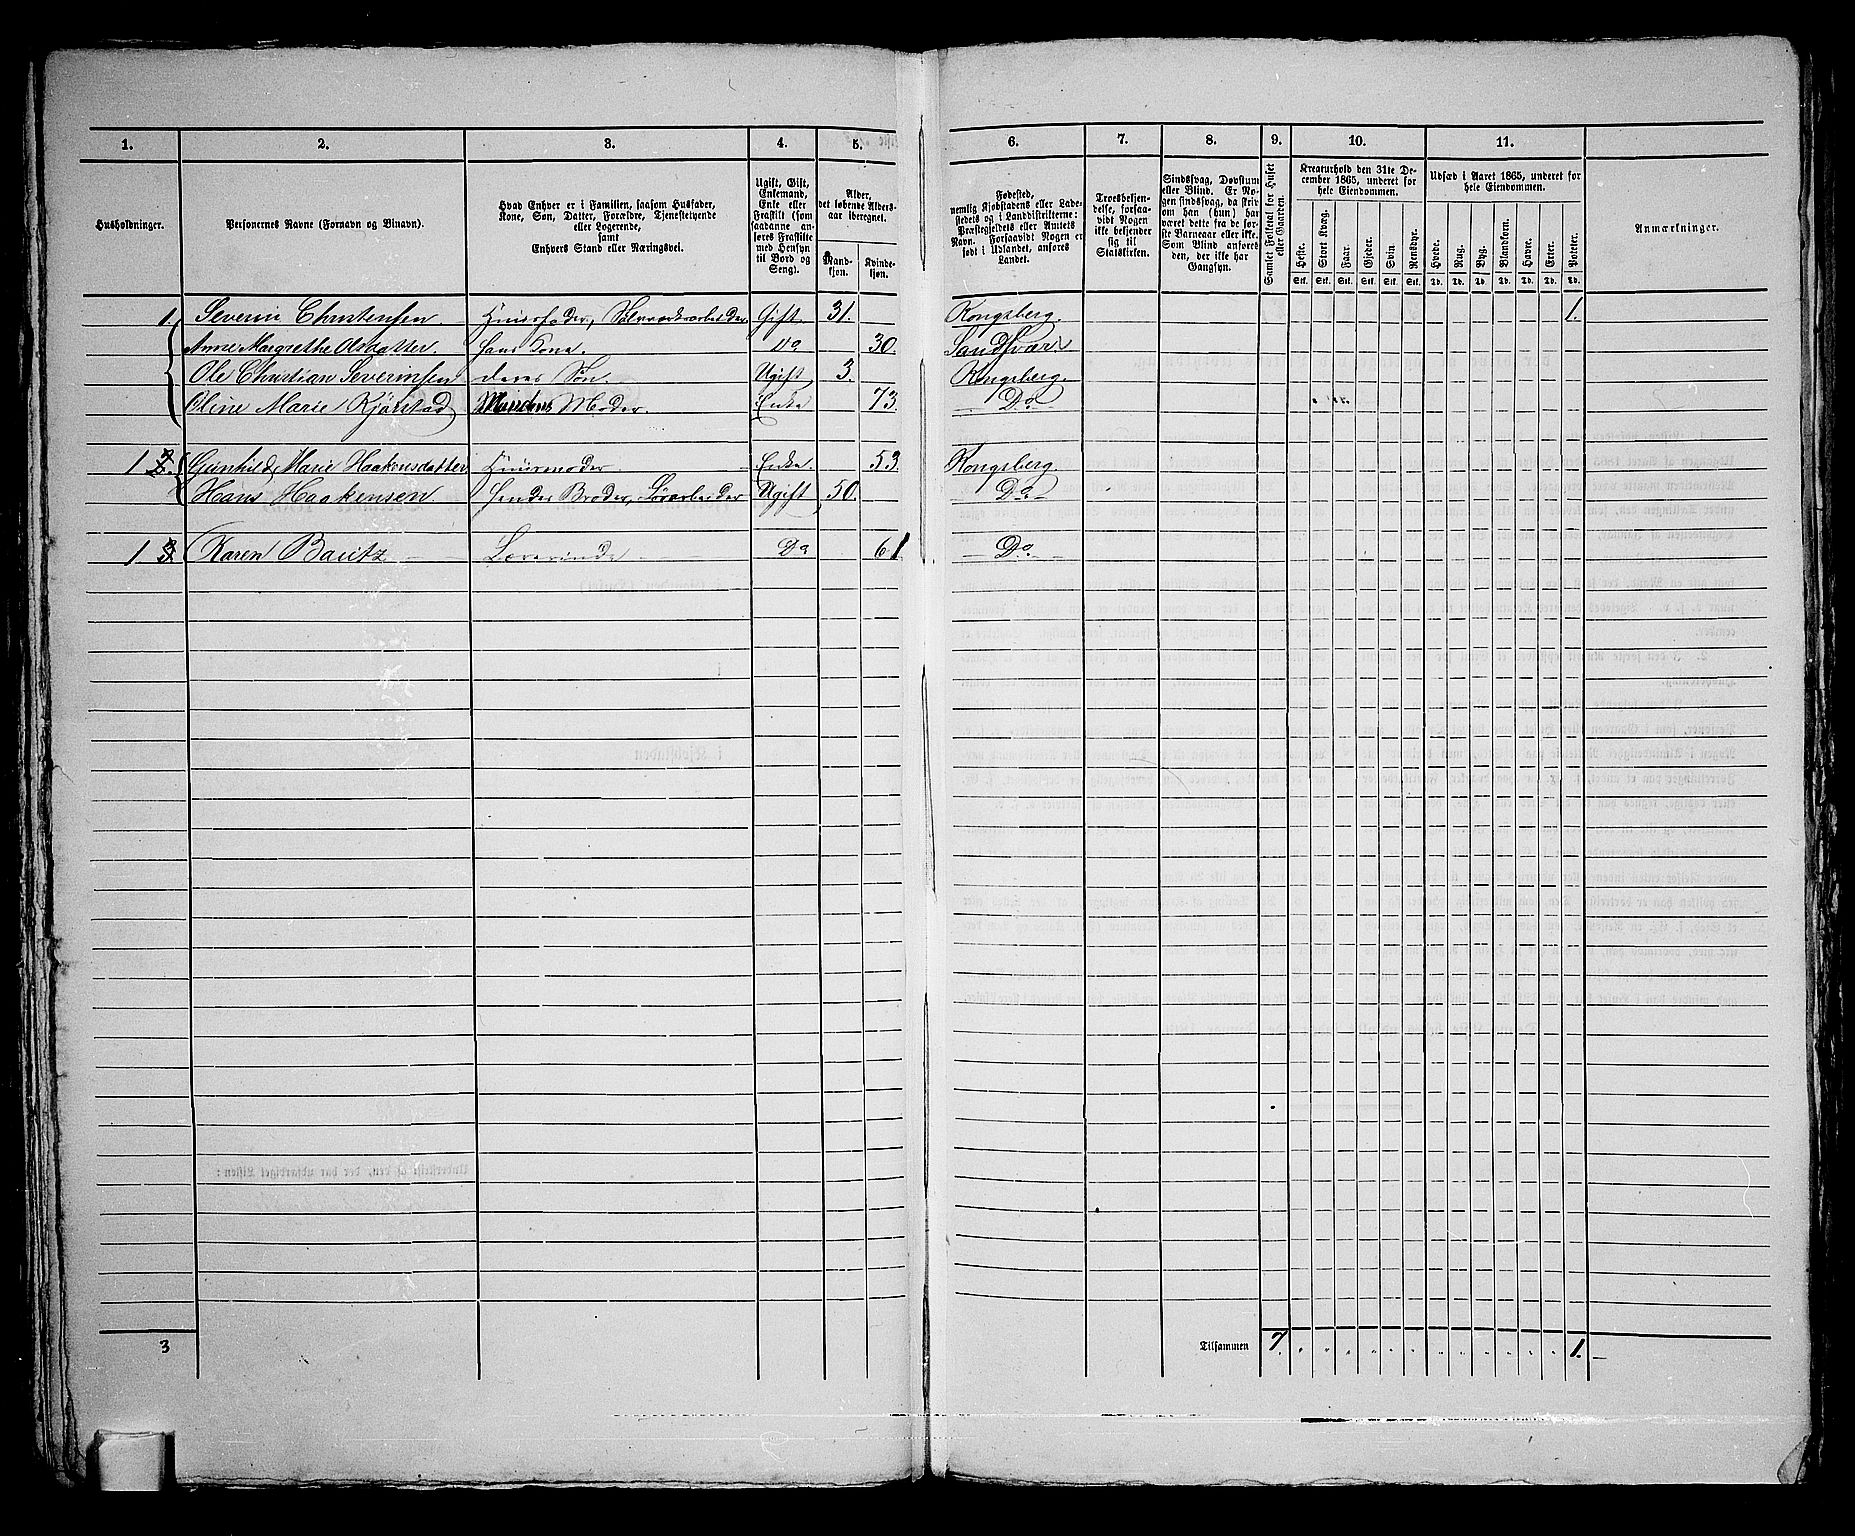 1. 2. 3. 4. 5. 6. 7. 8. 9. 10. 11.
Husholdninger.
Personernes Navne (Fornavn og Binavn).
Hvad Enhver er i Familien, saasom Husfader,
Kone, Søn, Datter, Forældre, Tjenestetyende
eller Logerende,
samt
Enhvers Stand eller Næringsvei.
Ugift, Gift,
Enkemand,
Enke eller
Fraskilt (som
saadanne an-
føres Fraskilte
med Hensyn
til Bord og
Seng).
Alder,
det løbende Alders-
aar iberegnet.
Mand-
kjøn.
Kvinde-
kjøn.
Fødested,
nemlig Kjøbstadens eller Lade-
stedets og i Landdistrikterne:
Præstegjeldets eller Amtets
Navn. Forsaavidt Nogen er
født i Udlandet, anføres
Landet.
Troesbekjen-
delse, forsaa-
vidt Nogen
ikke bekjender
sig til
Statskirken.
Sindssvag, Døvstum
eller Blind. Er No-
gen sindssvag, da skriv
om han (hun) har
været dette fra de før-
ste Barneaar eller ikke.
Som Blind anføres
den, der ikke har
Gangsyn.
Samlet Folketal for Huset
eller Gaarden.
Kreaturhold den 31te De-
cember 1865, underet for
hele Eiendommen.
Heste. Stort Kvæg. Faar. Gjeder. Svin Rensdyr.
Stk. Stk. Stk. Stk. Stk. Stk.
Udsæd i Aaret 1865, underet for
hele Eiendommen.
Hvede. Rug. Byg. Blandkorn. Havre. Erter. Poteter.
Td. Td. Td. Td. Td. Td. Td.
Anmærkninger.
1. Severin Christensen. Huusfader, Sølvværksarbeider Gift 31. Kongsberg. 1.
Anne Margrethe Olsdatter. hans Kone. Do 30. Sandsvær.
Ole Christian Severinsen deres Søn. Ugift 3. Kongsberg.
Oline Marie Kjørstad Mandens Moder. Enke 73. Do
1 2. Gunhild Marie Haakensdatter Huusmoder. Enke. 53. Kongsberg.
Hans Haakensen hendes Broder, Ugift 50. Do
1 3. Karen Bautz Lærerinde Do 61 Do
3 Tilsammen 7. " " " " " " " " " " " " 1.